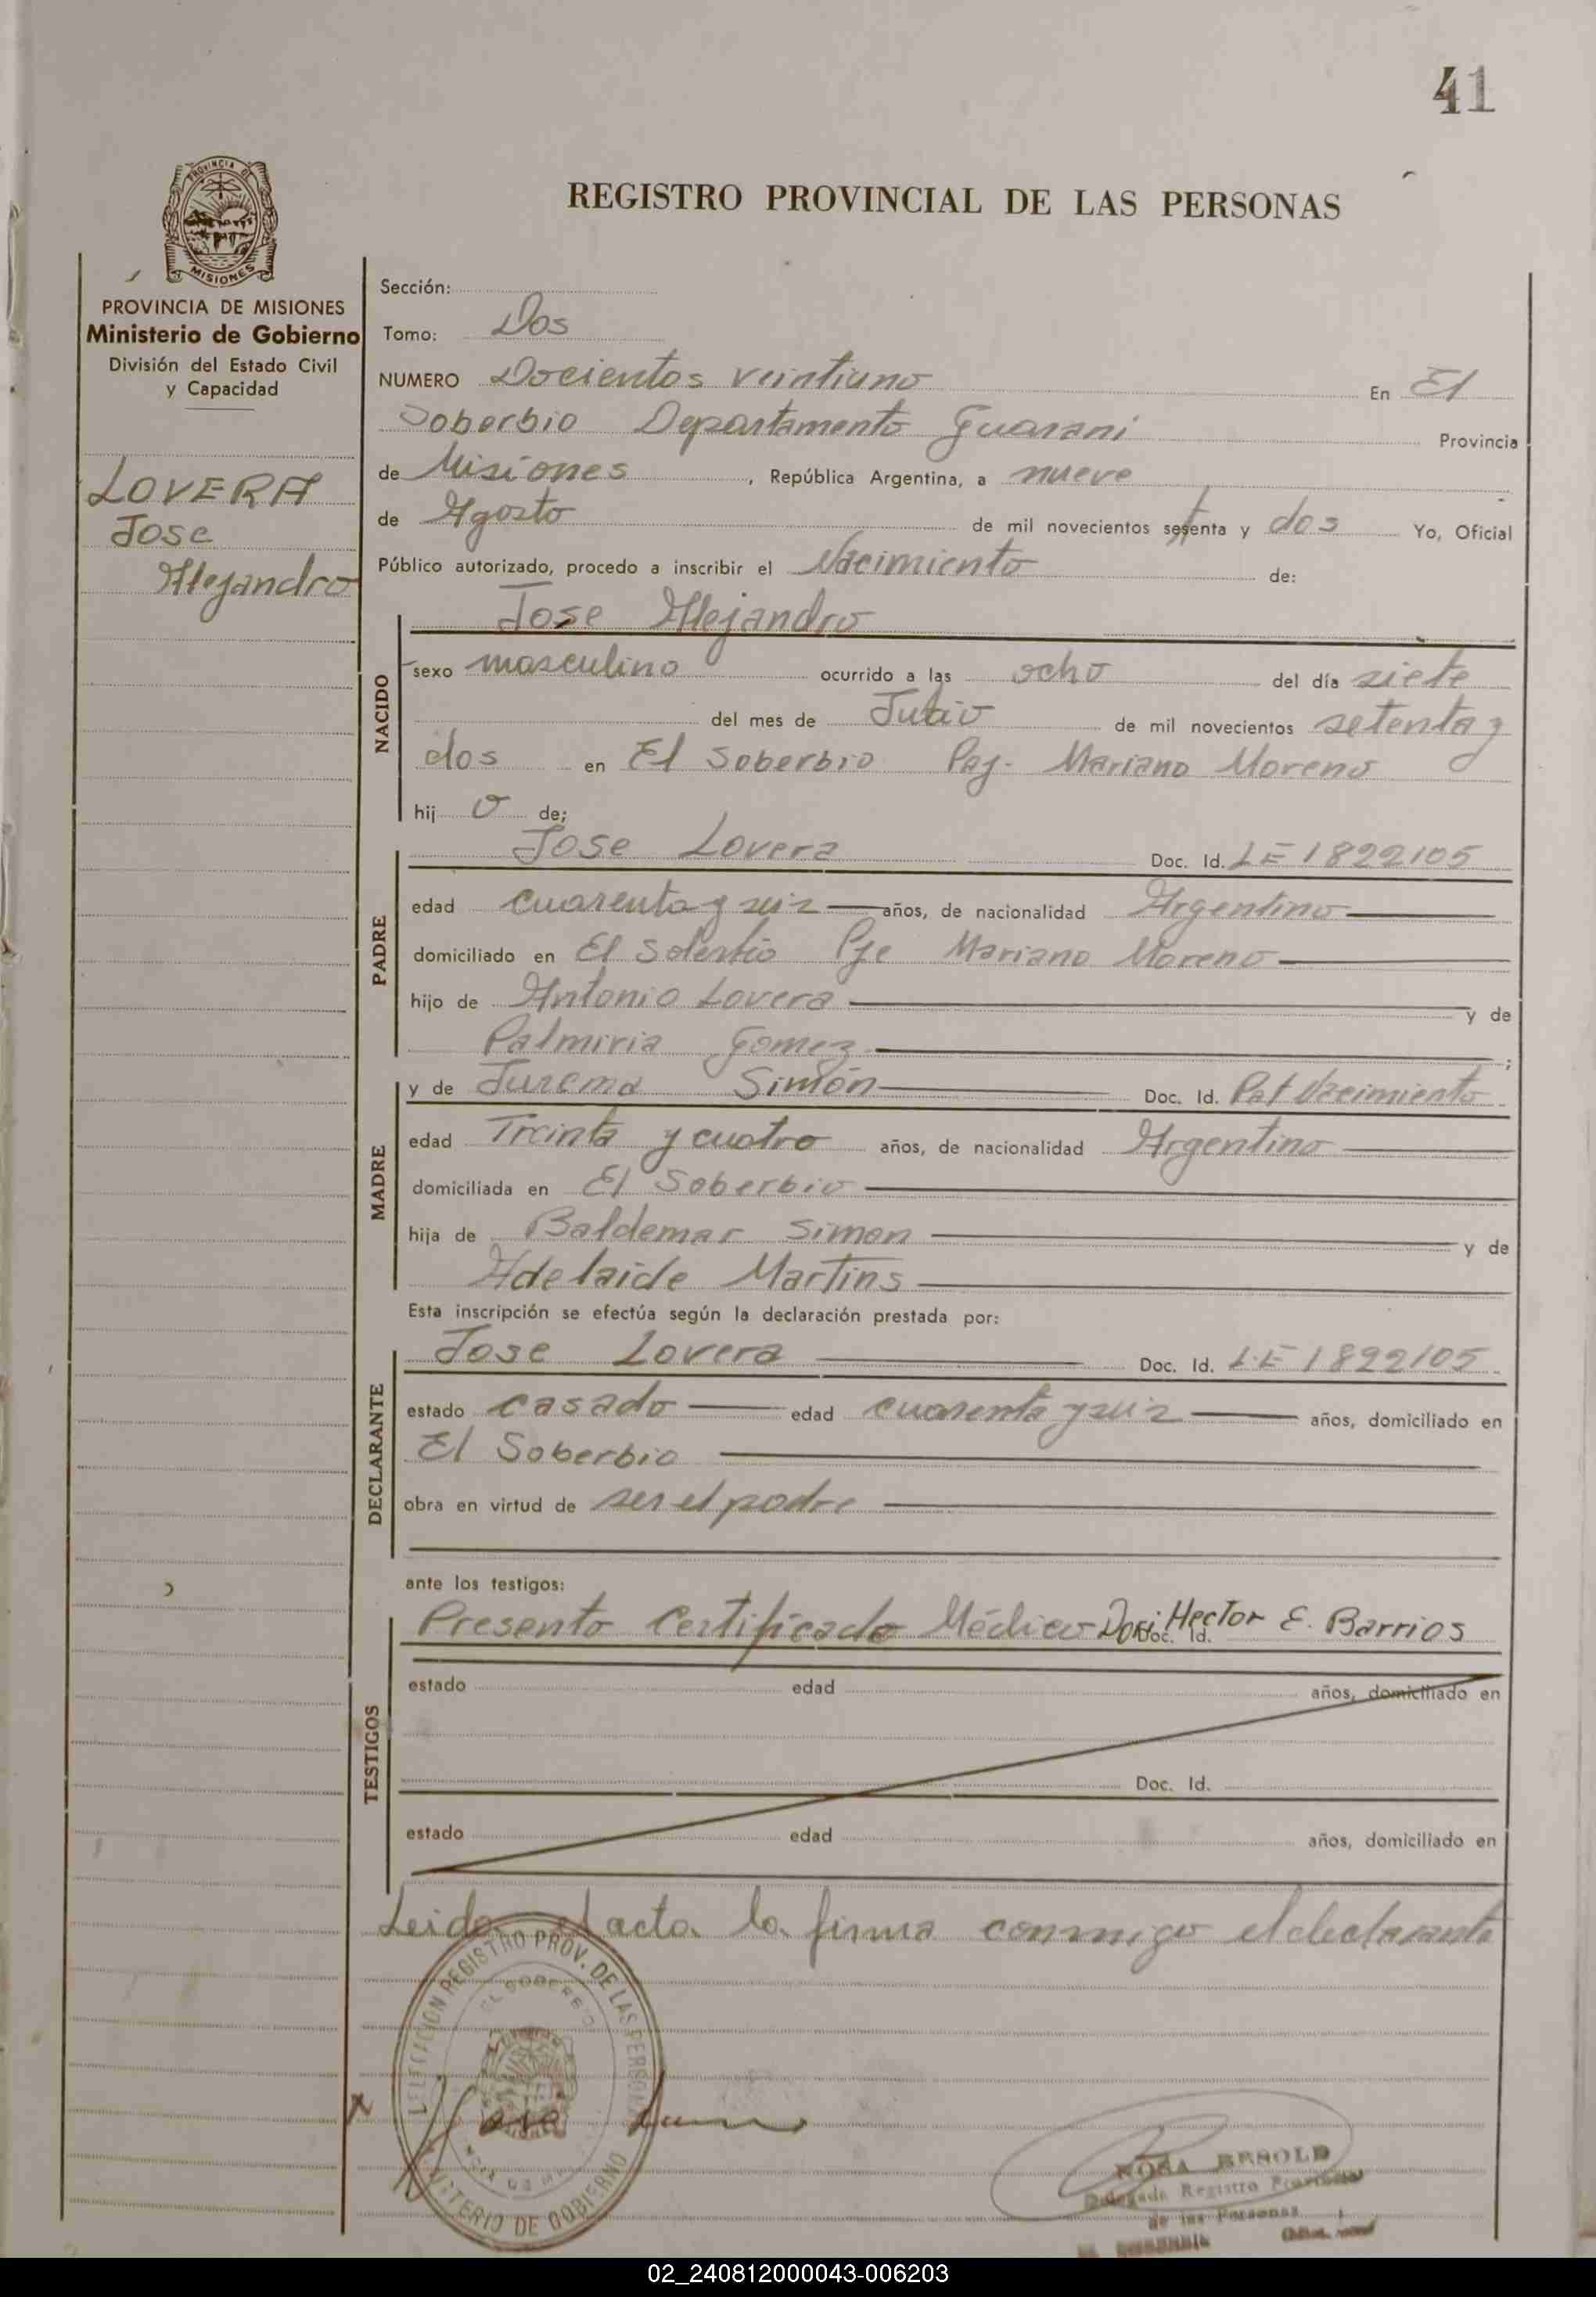 41
REGISTRO PROVINCIAL DE LAS PERSONAS
PROVINCIA DE
MISIONES
PROVINCIA DE MISIONES
Ministerio de Gobierno
División del Estado Civil
y Capacidad
LOVERA
Jose
Alejandro
Sección:
Tomo: Dos
NUMERO Docientos veintiuno En El
Soberbio Departamento Guarani Provincia
de Misiones, República Argentina, a nueve
de Agosto de mil novecientos setenta y dos Yo, Oficial
Público autorizado, procedo a inscribir el Nacimiento de:
NACIDO
Jose Alejandro
sexo masculino ocurrido a las ocho del día siete
del mes de Julio de mil novecientos setenta y
dos en El Soberbio Paj. Mariano Moreno
hij o de;
PADRE
Jose Lovera Doc. Id. LE 1822105
edad cuarenta y seiz años, de nacionalidad Argentino
domiciliado en El Soberbio Pje Mariano Moreno
hijo de Antonio Lovera y de
Palmiria Gomez ;
MADRE
y de Jurema Simón Doc. Id. Pat Nacimiento
edad Treinta y cuatro años, de nacionalidad Argentino
domiciliada en El Soberbio
hija de Baldemar Simon y de
Adelaide Martins
Esta inscripción se efectúa según la declaración prestada por:
DECLARANTE
Jose Lovera Doc. Id. L.E 1822105
estado casado edad cuarenta y seiz años, domiciliado en
El Soberbio
obra en virtud de ser el padre
ante los testigos:
TESTIGOS
Presento Certificado Médico Doc. Id. Hector E. Barrios
estado edad años, domiciliado en
Doc. Id.
estado edad años, domiciliado en
Leida el acta la firma conmigo el declarante
DELEGACION REGISTRO PROV. DE LAS PERSONAS
EL SOBERBIO
MINISTERIO DE GOBIERNO
Jose
ROSA BENOLD
Delegada Registro Provincial
de las Personas
02_240812000043-006203